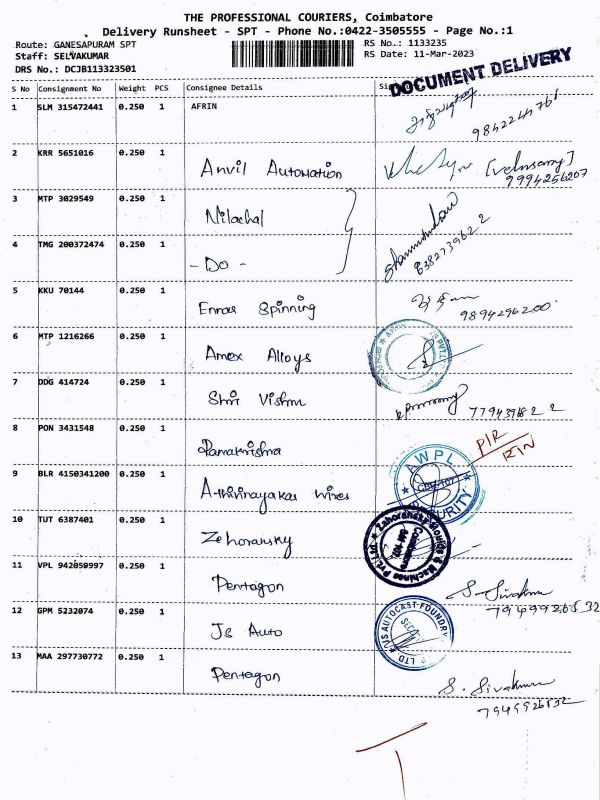 THE PROFESSIONAL COURIERS, Coimbatore
Delivery Runsheet - SPT - Phone No.:0422-3505555 - Page No.:1
Route: GANESAPURAM SPT RS No.: 1133235
Staff: SELVAKUMAR RS Date: 11-Mar-2023
DRS No.: DCJB113323501
DOCUMENT DELIVERY
S No Consignment No Weight PCS Consignee Details
1 SLM 315472441 0.250 1 AFRIN
9842244761
2 KRR 5651016 0.250 1 Anvil Automation
9994256207
3 MTP 3029549 0.250 1 Nilachal
4 TMG 200372474 0.250 1 - Do -
5 KKU 70144 0.250 1 Ennar Spinning
9894296200
6 MTP 1216266 0.250 1 Amex Alloys
7 DDG 414724 0.250 1 Shri Vishnu
8 PON 3431548 0.250 1 Ramakrishna
9 BLR 4150341200 0.250 1 Athivinayakar Wires
AWPL
SECURITY
10 TUT 6387401 0.250 1 Zehoransky
Zahoransky Moulds & Machines Pvt. Ltd
Coimbatore
11 VPL 942859997 0.250 1 Pentagon
S. Sivakumar
12 GPM 5232074 0.250 1 Js Auto
JS AUTOCAST-FOUNDRY
13 MAA 297730772 0.250 1 Pentagon
S. Sivakumar